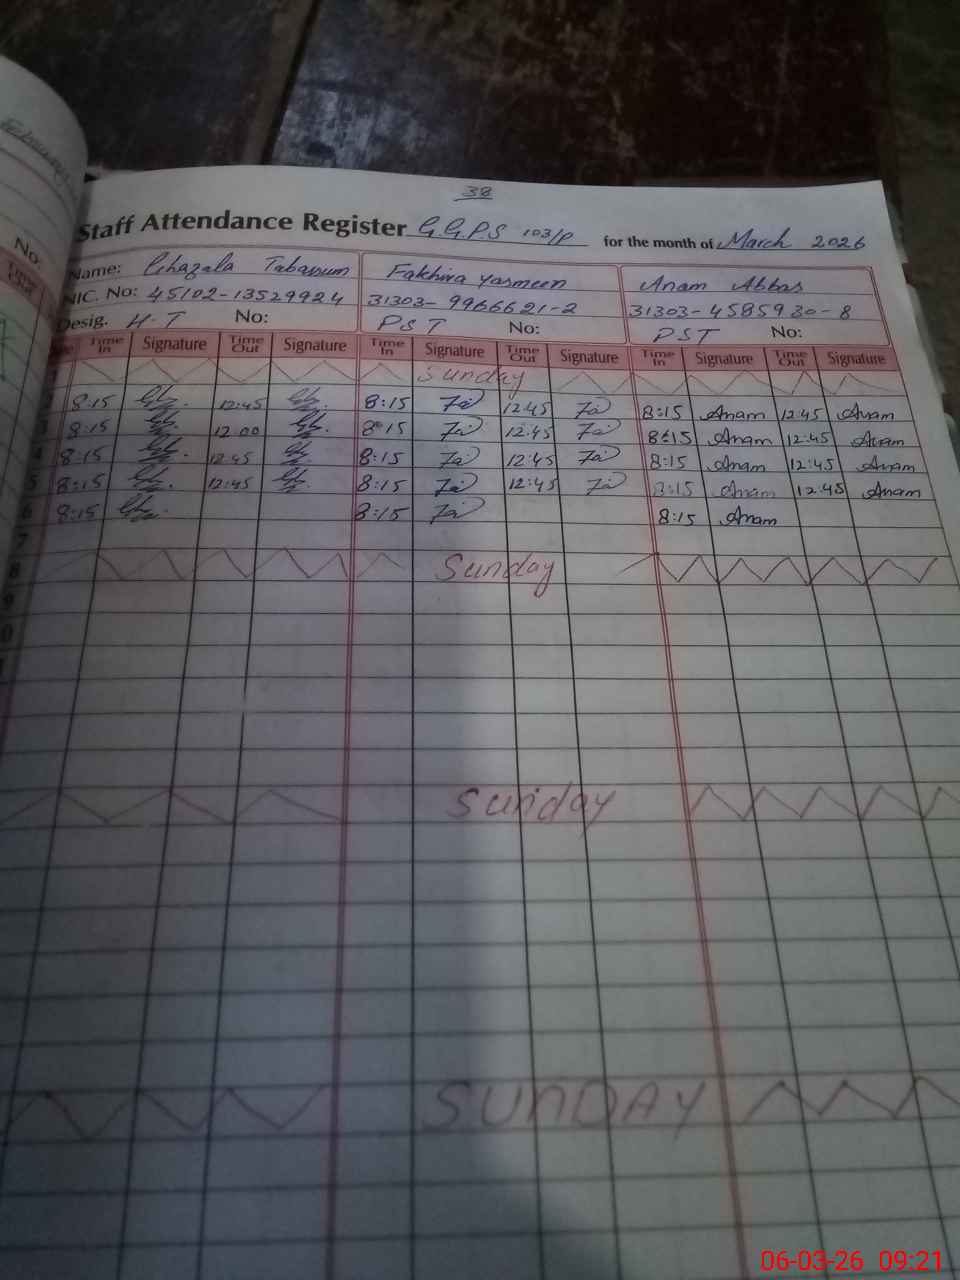 38
Staff Attendance Register G.G.P.S 103/P for the month of March 2026
Name: Ghazala Tabassum Fakhira Yasmeen Anam Abbas
NIC. No: 45102-13529924 31303-9966621-2 31303-4585930-8
Desig. H-T No: PST No: PST No:
Time In Signature Time Out Signature Time In Signature Time Out Signature Time In Signature Time Out Signature
Sunday
8:15 12:45 8:15 12:45 8:15 Anam 12:45 Anam
3 8:15 12:00 8:15 12:45 8:15 Anam 12:45 Anam
4 8:15 12:45 8:15 12:45 8:15 Anam 12:45 Anam
5 8:15 12:45 8:15 12:45 8:15 Anam 12:45 Anam
6 8:15 8:15 8:15 Anam
7
8 Sunday
9
Sunday
SUNDAY
No.
Time Out
06-03-26 09:21